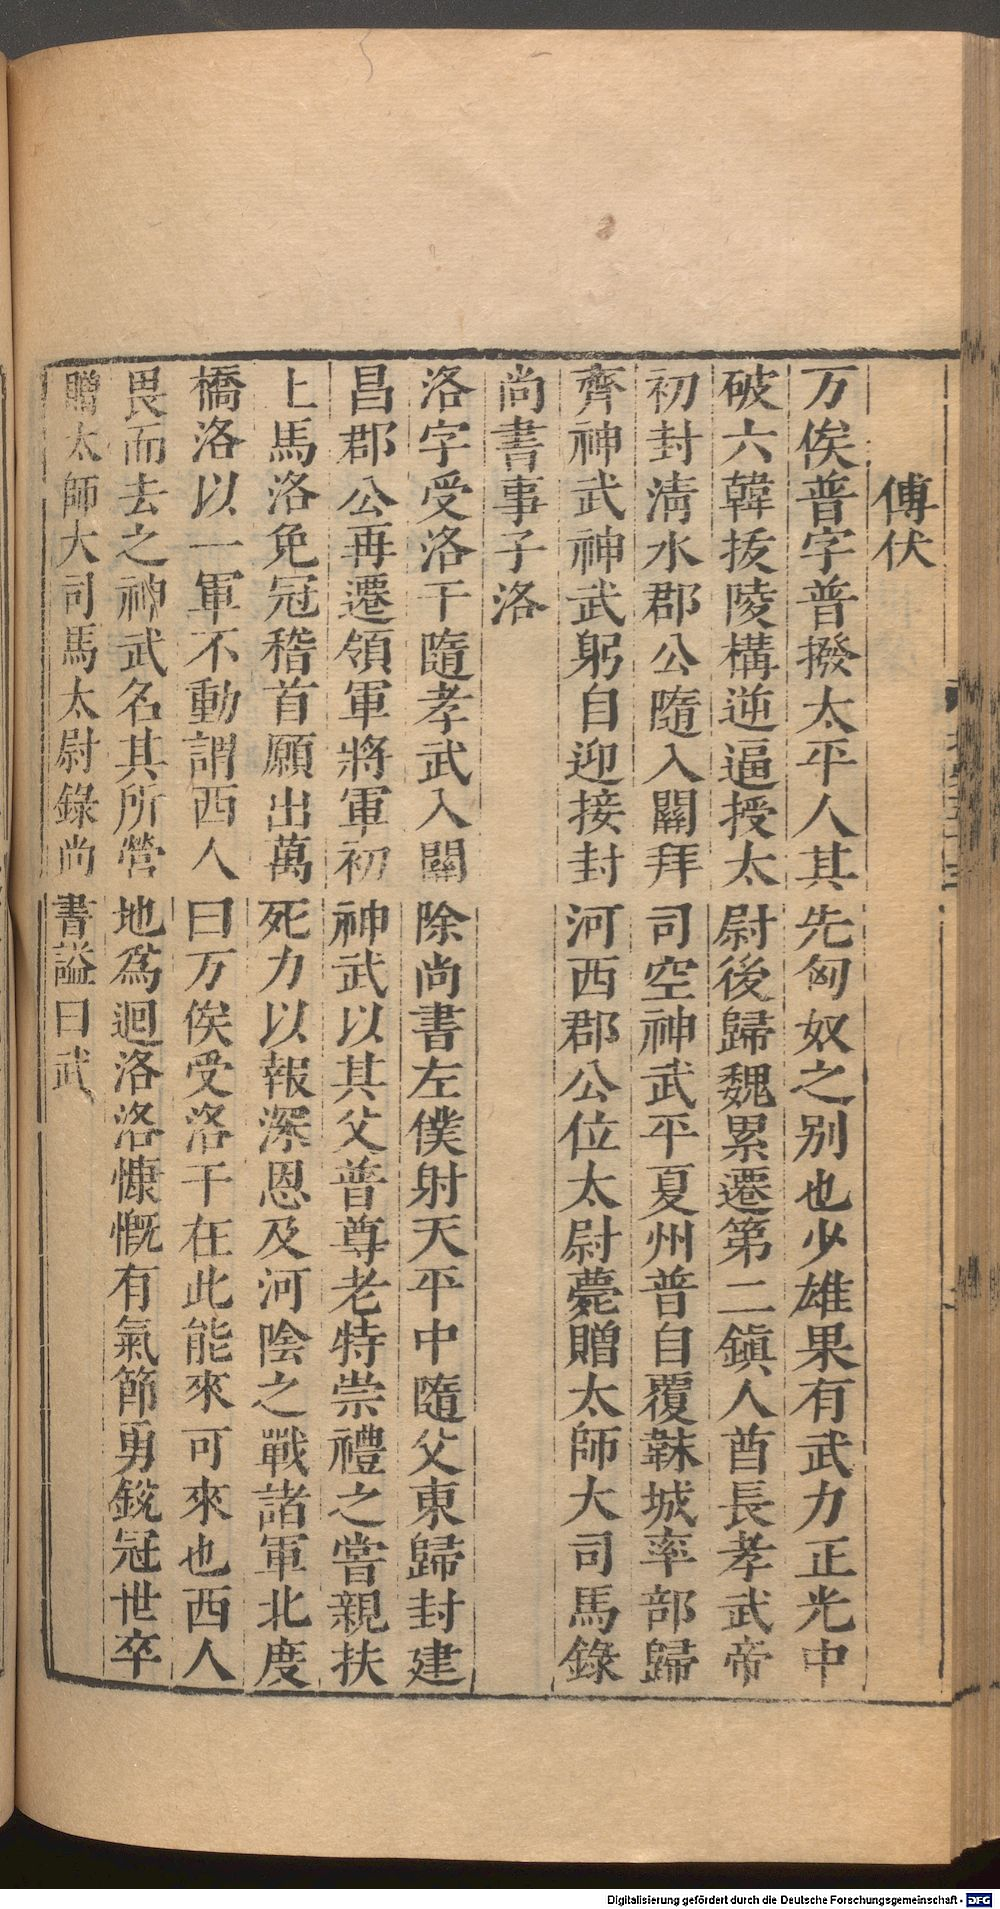 傅伏
万俟普字普撥太平人其先匈奴之別也少雄果有武力正光中
破六韓拔陵構逆逼授太尉後歸魏累遷第二鎮人酋長孝武帝
初封清水郡公隨入關拜司空神武平夏州普自覆靺城率部歸
齊神武神武躬自迎接封河西郡公位太尉薨贈太師大司馬錄
尚書事子洛
洛字受洛干隨孝武入關除尚書左僕射天平中隨父東歸封建
昌郡公再遷領軍將軍初神武以其父普尊老特崇禮之嘗親扶
上馬洛免冠稽首願出萬死力以報深恩及河陰之戰諸軍北度
橋洛以一軍不動謂西人曰万俟受洛干在此能來可來也西人
畏而去之神武名其所營地爲迴洛洛慷慨有氣節勇銳冠世卒
贈太師大司馬太尉錄尚書謚曰武
Digitalisierung gefördert durch die Deutsche Forschungsgemeinschaft - DFG